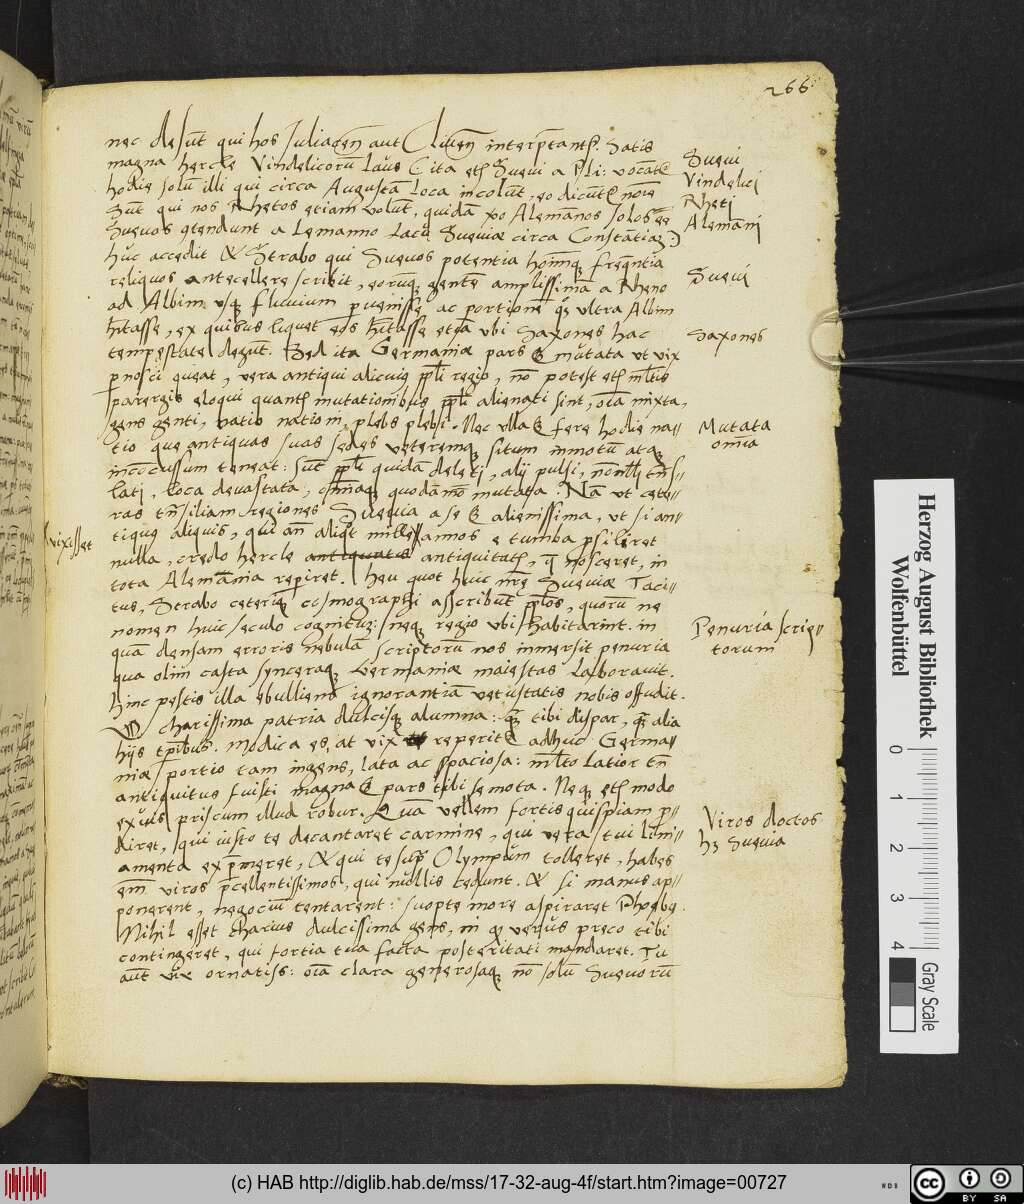 266
nec desūt qui hos Juliacen̄ aut Cliuen̄ interp̄tant᷑. Satis
magna hercle Vindelicorū laus Cita et᷑ Sueui a Pli: vocāt᷑
hodie solū illi qui circa Augustā loca incolūt, eo dicūt᷑ nōīe
Sūt qui nos Rhetos etiam volūt, quidā Alemānos solos ēē
Sueuos ꝯtendunt a Lemanno lacu Sueuiæ circa Constātiā
huc accedit & Strabo qui Sueuos potentia hoīmq̨ freq̄ntia
reliquos antecellere scribit, eorūq̨ gentē amplissimā a Rheno
ad Albim vsq̨ fluuium ꝑuenisse ac portionē vltra Albim
hītasse, ex quibus liquet eos hītasse etiā vbi Saxones hac
tempestate degūt. Sed ita Germaniæ pars ē mutata vt vix
ꝑnosci queat, vera antiqui alicuiꝰ ppl̄i regio, nō potest et᷑ ml̄tis
parergis eloqui quantū mutationibus ppl̄i alienati sint, oīa mixta,
gens genti, natio nationi, plebs plebi. Nec vlla ē fere hodie na=
tio que antiquas suas sedes veteremq̨ situm inmotū atq̨
inconcussum teneat: sūt ppl̄i quidā deleti, alij pulsi, nōnlli tn̄s=
lati, loca deuastata, omīaq̨ quodāmō mutata. Nā vt cete=
ras tn̄siliam regiones Sueuia a se ē alienissima, vt si an=
tiquꝰ aliquis, qui an̄ aliqt mille annos e tumba ꝓsiliret
vixisset
nulla, credo hercle antiquatus antiquitat᷑, q̄ nosceret, in
tota Alemānia reperiret. Heu quot huic nr̄ę Sueuiæ Taci=
tus, Strabo ceteriq̨ cosmographi asscribūt ppl̄os, quorū ne
nomen huic seculo cognitū: neq̨ regio vbi habitarint. in
quā densam erroris nebulā scriptorū nos inmersit penuria
qua olim casta synceraq̨ Germaniæ maiestas laborauit.
hinc pestis illa ebulliens ignorantiā vetustatis nobis offudit.
O charissima patria dulcisq̨ alumna: q̄ tibi dispar, q̄ alia
hijs tp̄ibus. modica es, at vix reperit᷑ adhuc Germa=
niæ portio tam ingens, lata ac spaciosa: ml̄to latior tn̄
antiquitus fuisti magna ē pars tibi semota. Neq̨ et᷑ modo
exuis priscum illud robur. Quā vellem fortis quispiam ꝓ=
diret, qui iusto te decantaret carmine, qui vera tui lini=
amenta exp̄meret, & qui te sup̄ Olympum tolleret, habes
em̄ viros p̄cellentissimos, qui nullis cedunt. & si manus ap=
ponerent, negociū tentarent: suopte more aspiraret Phoebꝰ.
Nihil esset charius dulcissima gens, in verꝰ preco tibi
contingeret, qui fortia tua facta posteritati mandaret. Tu
aūt vir ornatiss: oīa clara generosaq̨ nō solū Sueuorū
Sueui
Vindelici
Rheti
Alemāni
Sueui
Saxones
Mutata
omīa
Penuria scrip=
torum
Viros doctos
hȝ Sueuia
Herzog August Bibliothek
Wolfenbüttel
0 1 2 3 4
Gray Scale
(c) HAB http://diglib.hab.de/mss/17-32-aug-4f/start.htm?image=00727
WDB
cc BY SA